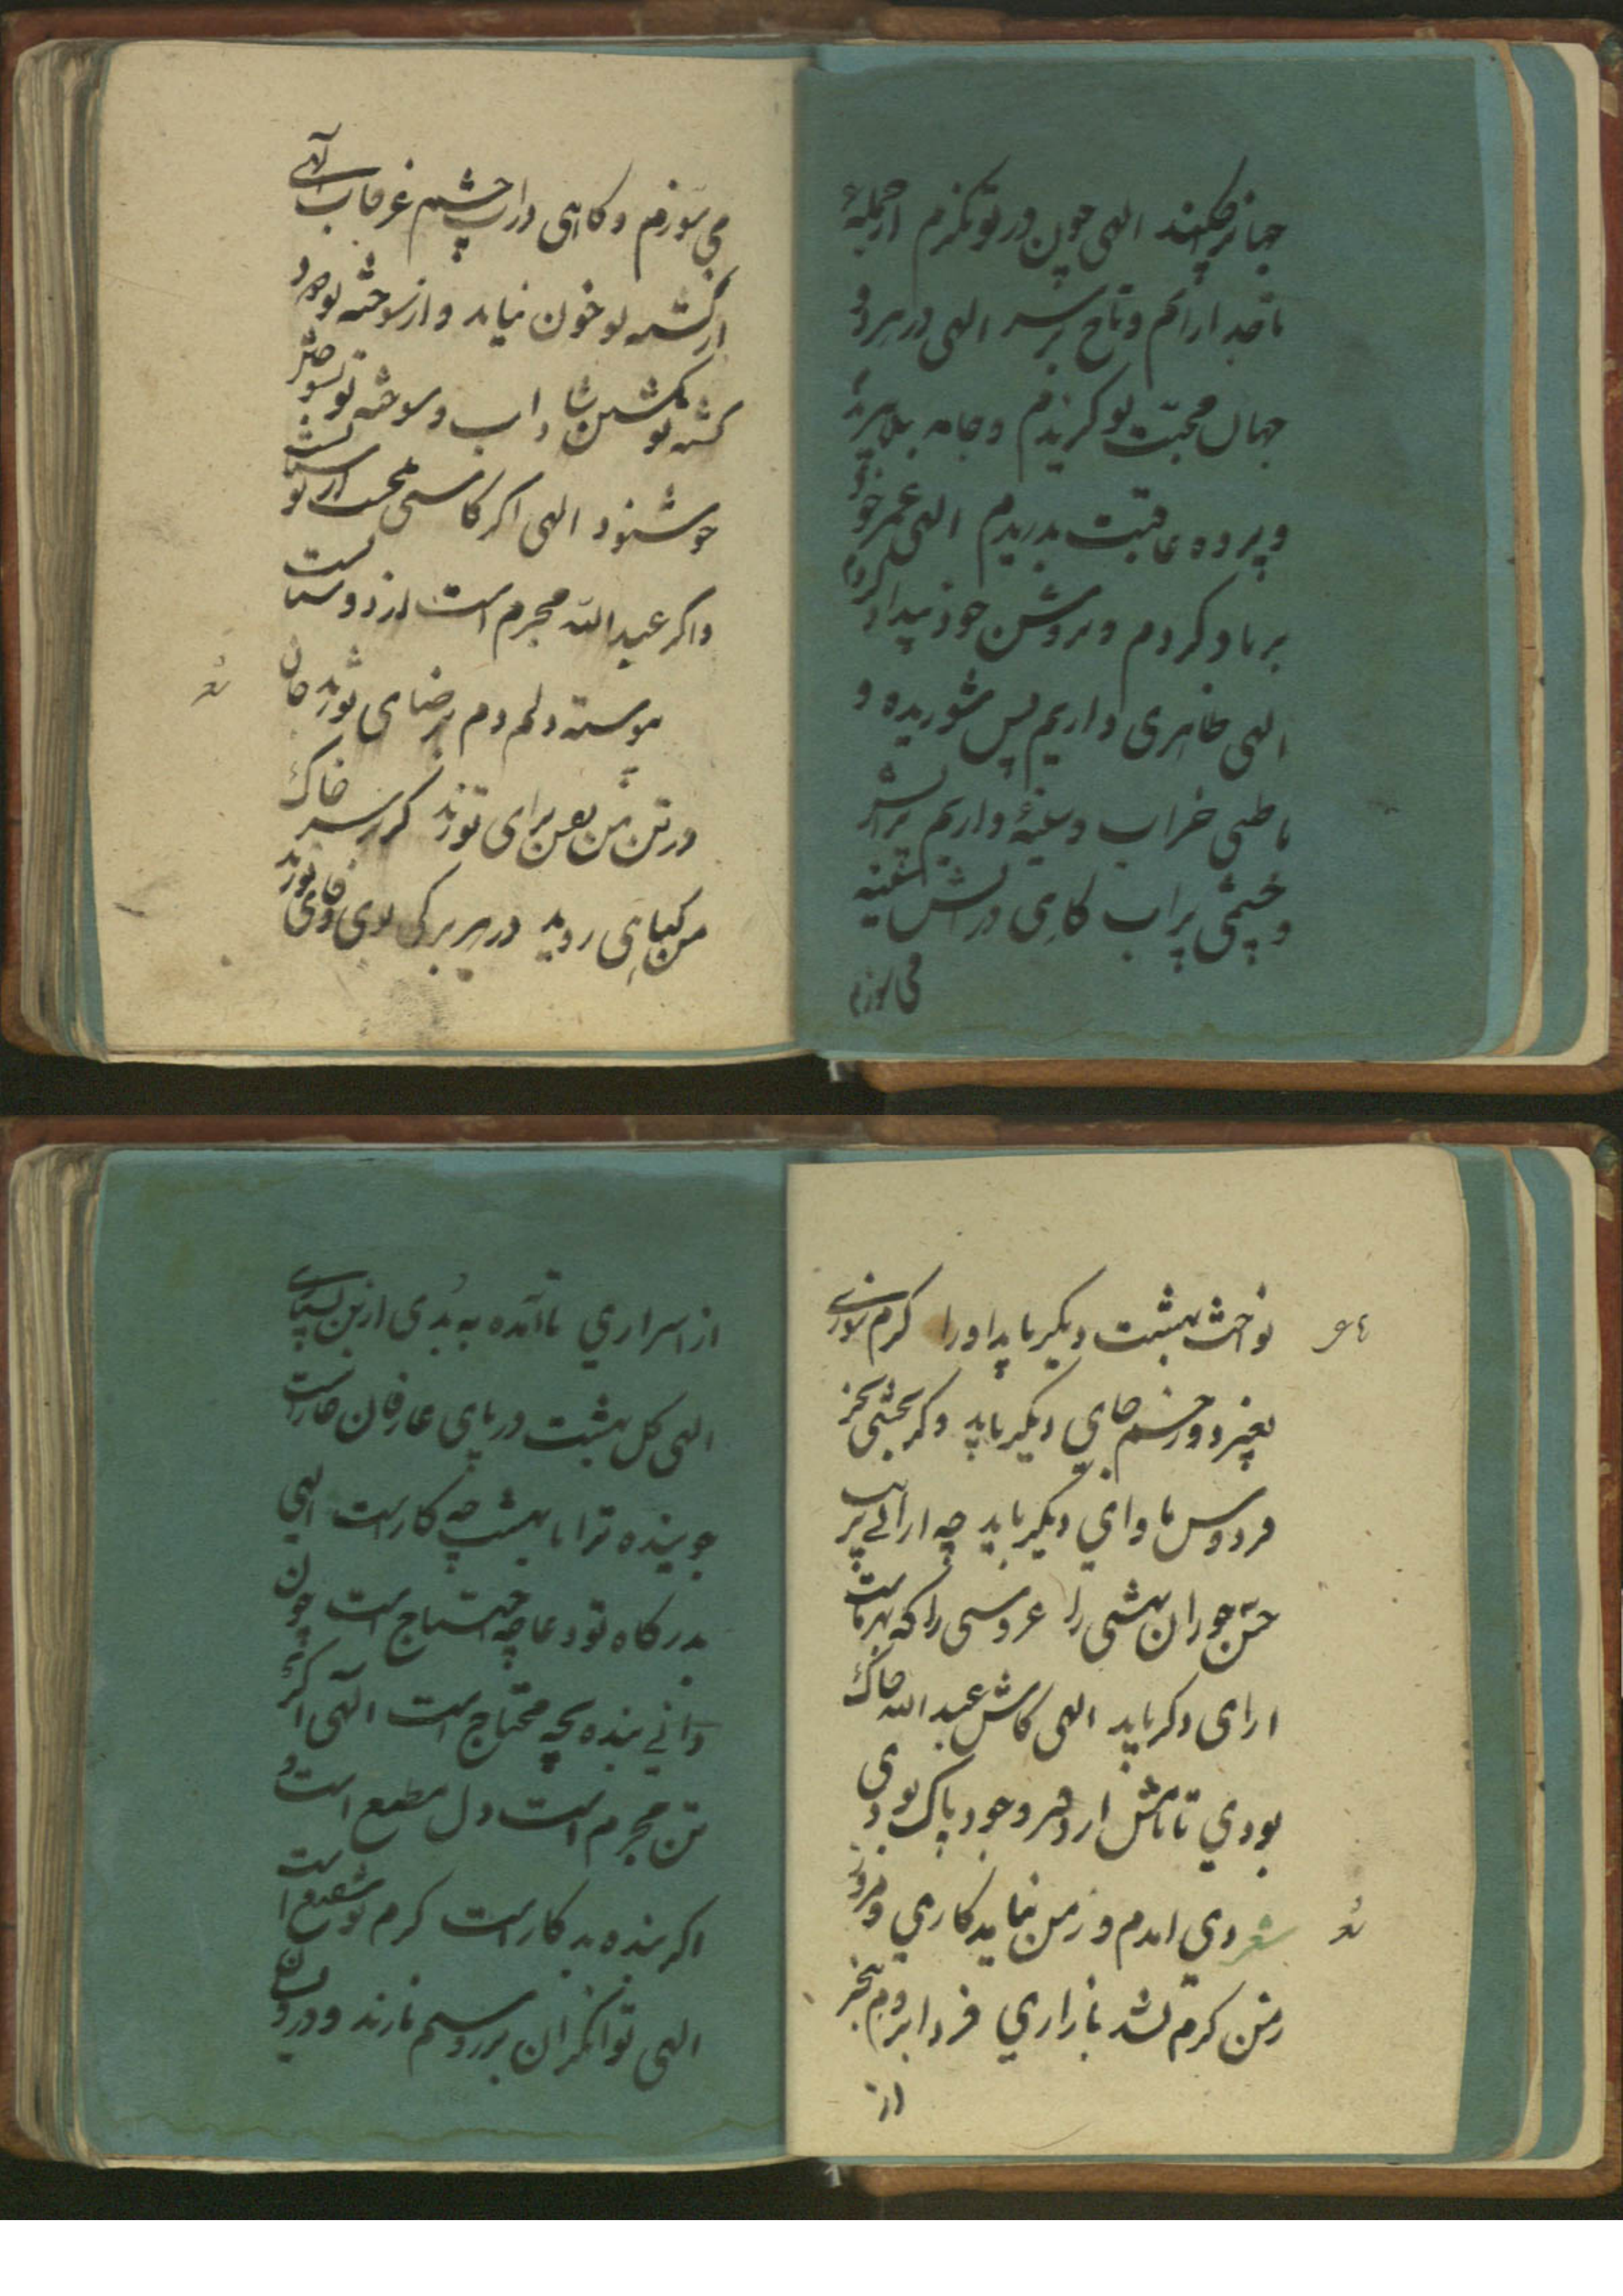 جهانرا چکند الهی چون در تو نگرم از جمله
تاجدارانم و تاج بر سر الهی در هر دو
جهان محبت تو گزیدم و جامه بلا بریدم
و پرده عافیت بدریدم الهی عمر خود
بر باد کردم و بر تن خود بیداد کردم
الهی ظاهری داریم بس شوریده و
باطنی خراب و سینهٔ داریم پر آتش
و چشمی پر آب گاهی در آتش سینه
می سوزم
می سوزم و گاهی در آب چشم غرقاب الهی
از کشته تو خون نیاید و از سوخته تو دود
کشته تو بکشتن شاداب و سوخته تو بسوختن
خوشنود الهی اگر کاسنی تلخست از بوستانست
و اگر عبدالله مجرم است از دوستانست
پیوسته دلم دم برضای تو زند جان
در تن من نفس برای تو زند گر بر سر خاک
من گیاهی روید در هر برگی بوی وفای تو زند
نواخت بهشت دیگر باید او را گرم سوزی
بغیر دوزخم جای دیگر باید وگر بخشی بجز
فردوس ماوای دیگر باید چه آرائی پی
حسن حوران بهشتی را عروسی را که بهر ماست
ارای دگر باید الهی کاش عبدالله خاک
بودی تا نامش از دفتر وجود پاک بودی
شعر دی امدم و ز من نیاید کاری و امروز
ز من گرم نشد بازاری فردا بروم بیخبر
از
از اسراری ناآمده به بدی ازین بسیاری
الهی گل بهشت در پای عارفان خار است
جوینده ترا با بهشت چه کار است الهی
بدرگاه تو دعا چه احتیاج است چون
دانی بنده بچه محتاج است الهی اگر
تن مجرم است دل مطیع است و
اگر بنده بدکار است کرم تو شفیع است
الهی توانگران بزر و سیم نازند و درویشان